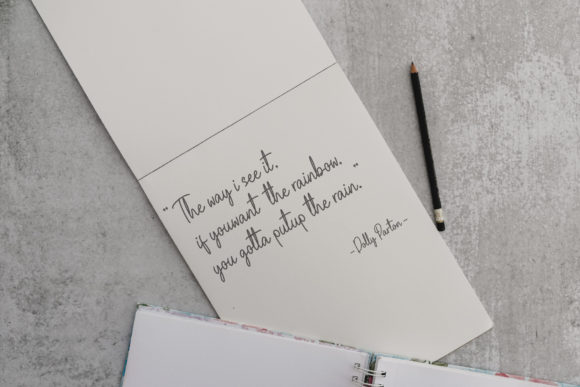 " The way i see it.
if youwant the rainbow.
you gotta putup the rain. "
-Dolly Parton-